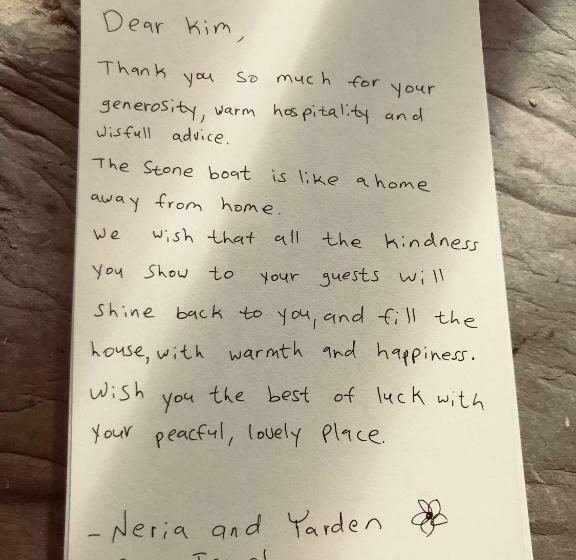 Dear Kim,
Thank you so much for your
generosity, warm hospitality and
wisfull advice.
The Stone boat is like a home
away from home.
We wish that all the kindness
you show to your guests will
shine back to you, and fill the
house, with warmth and happiness.
Wish you the best of luck with
your peacful, lovely place.
- Neria and Yarden